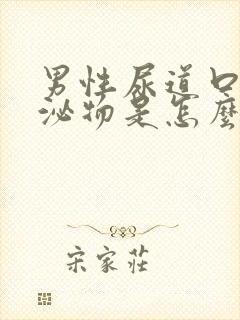 男性尿道口
泌物是怎麼
宋家莊